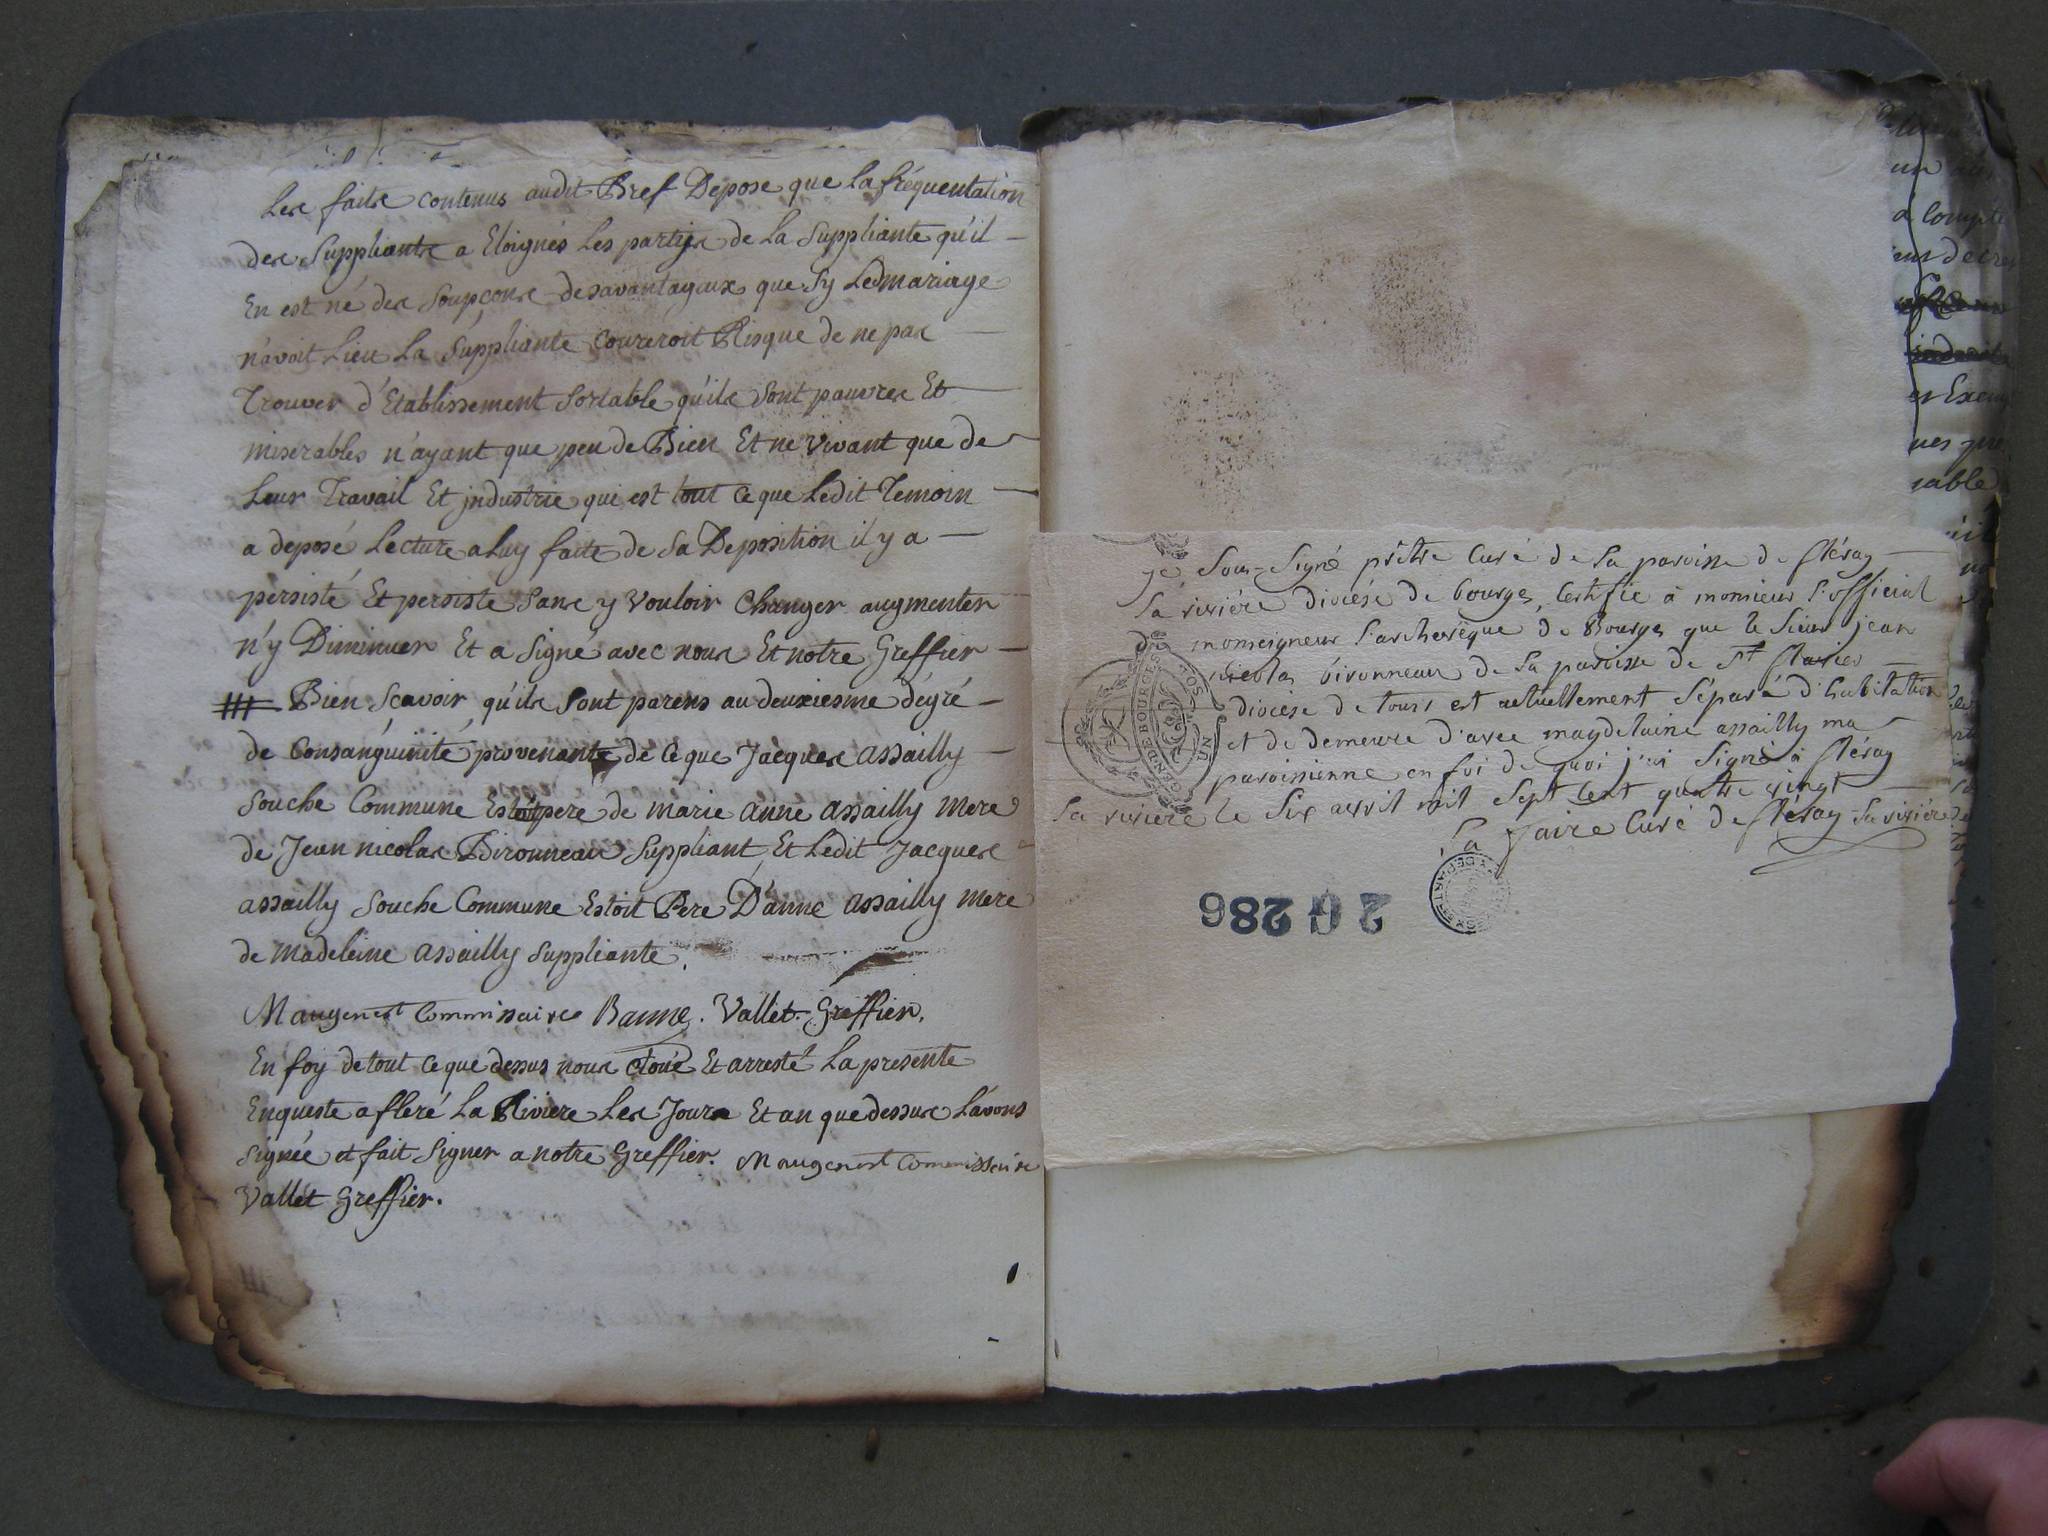 Les faits contenus audit Bref Depose que La fréquentation
des Suppliants a Eloignés Les partys de La Suppliante qu'il
En est né des Soupçons desavantageux que Sy Led mariage
n'avoit Lieu La Suppliante Coureroit Risque de ne pas
Trouver d'Etablissement Sortable qu'ils Sont pauvres Et
miserables n'ayant que peu de Bien Et ne vivant que de
Leur Travail Et jndustrie qui est tout ce que Ledit Temoin
a deposé Lecture a Luy faite de Sa Deposition il y a
persisté Et persiste Sans y vouloir Changer augmenter
n'y Diminuer Et a Signé avec nous Et notre Greffier
Bien Sçavoir qu'ils Sont parens au deuxiesme dégré
de Consanguinité provenante de ce que Jacques assailly
Souche Commune Estoit pere de marie anne assailly mere
de Jean nicolas Bironneau Suppliant Et Ledit Jacques
assailly Souche Commune Estoit Pere D'anne assailly mere
de madeleine assailly Suppliante.
Maugenest Commissaire Banne. Vallet Greffier.
En foy de tout ce que dessus nous Cloué Et arresté La presente
Enqueste a fleré La Riviere Les Jours Et an que dessus L'avons
Signée et fait Signer a notre Greffier. Maugenest Commissaire
Vallet Greffier.
je Sous-Signé prêtre Curé de la paroisse de fléray
la rivière diocése de bourges, Certifie à monsieur l'official
de monseigneur l'archevêque de Bourges que le Sieur jean
nicolas bironneau de la paroisse de St
diocése de tours est actuellement Séparé d'habitation
et de demeure d'avec magdelaine assailly ma
paroissienne en foi de quoi j'ai Signé à fléray
la riviere le Six avril mil Sept Cent quatre vingt
Curé de fléray la rivière
GEN DE BOURGES
2 G 286